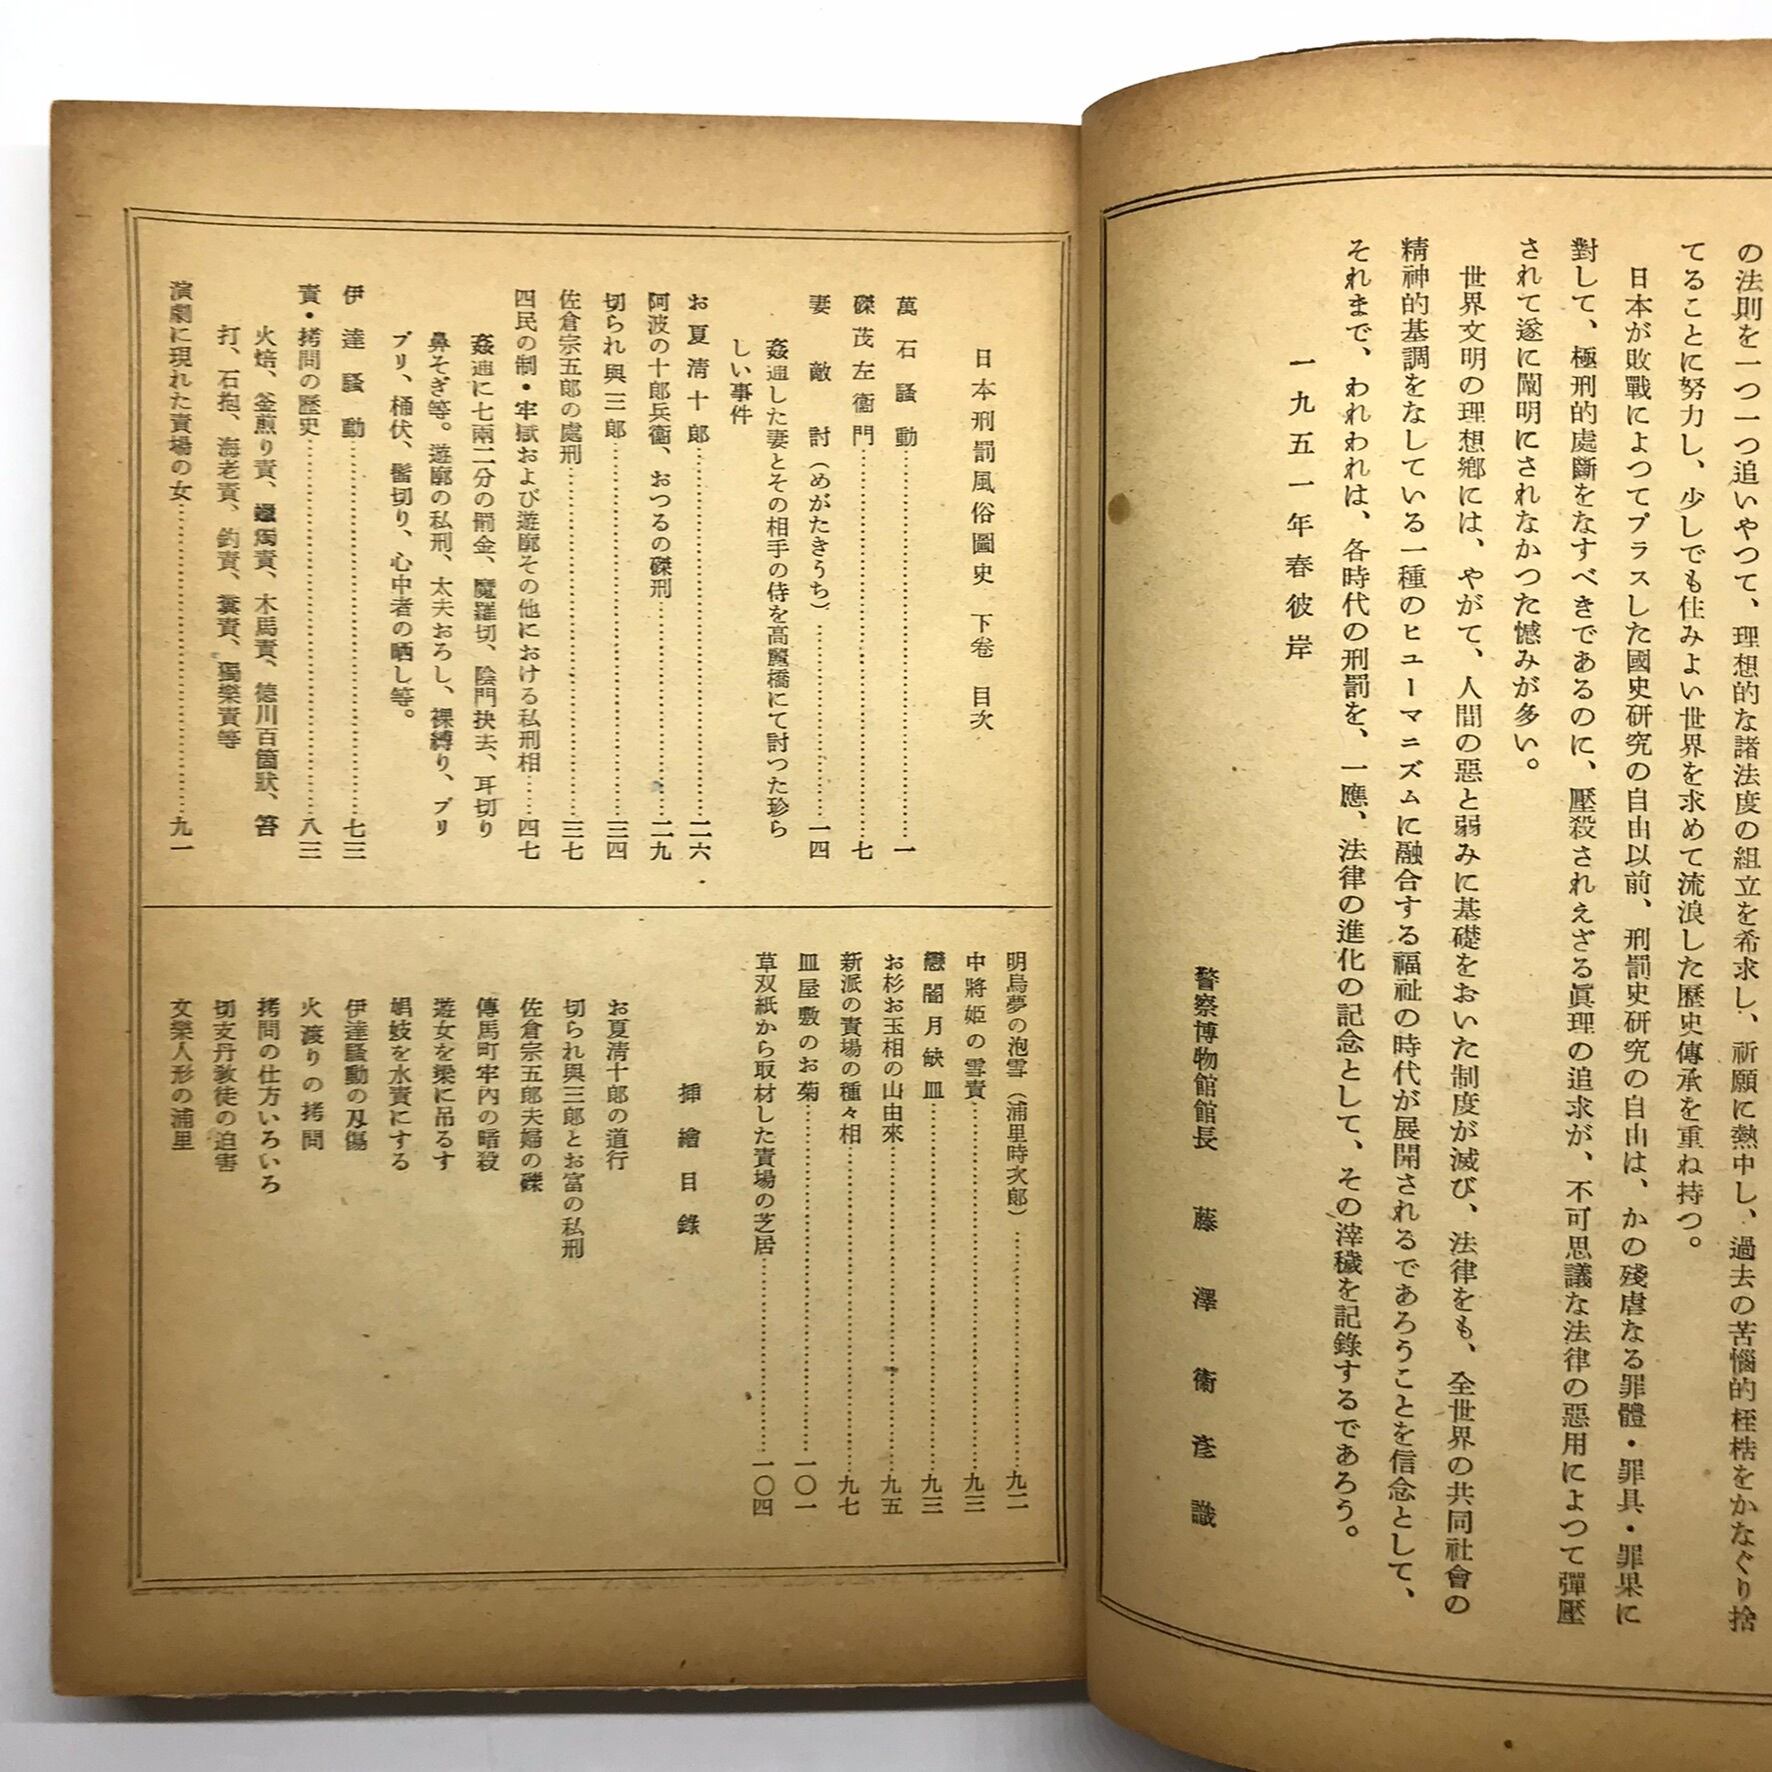 の法則を一つ一つ追いやつて、理想的な諸法度の組立を希求し、祈願に熱中し、過去の苦惱的桎梏をかなぐり捨
てることに努力し、少しでも住みよい世界を求めて流浪した歴史傳承を重ね持つ。
日本が敗戰によつてプラスした國史研究の自由以前、刑罰史研究の自由は、かの殘虐なる罪體・罪具・罪果に
對して、極刑的處斷をなすべきであるのに、壓殺されえざる眞理の追求が、不可思議な法律の惡用によつて彈壓
されて遂に闡明にされなかつた憾みが多い。
世界文明の理想鄕には、やがて、人間の惡と弱みに基礎をおいた制度が滅び、法律をも、全世界の共同社會の
精神的基調をなしている一種のヒューマニズムに融合する福祉の時代が展開されるであろうことを信念として、
それまで、われわれは、各時代の刑罰を、一應、法律の進化の記念として、その滓穢を記錄するであろう。
一九五一年春彼岸
警察博物館館長 藤澤衞彥識
日本刑罰風俗圖史 下卷 目次
萬石騷動……一
磔茂左衞門……七
妻敵討（めがたきうち）……一四
姦通した妻とその相手の侍を高麗橋にて討つた珍ら
しい事件
お夏淸十郞……二六
阿波の十郞兵衞、おつるの磔刑……二九
切られ與三郞……三四
佐倉宗五郞の處刑……三七
四民の制・牢獄および遊廓その他における私刑相……四七
姦通に七兩二分の罰金、魔羅切、陰門抉去、耳切り
鼻そぎ等。遊廓の私刑、太夫おろし、裸縛り、ブリ
ブリ、桶伏、髷切り、心中者の晒し等。
伊達騷動……七三
責・拷問の歷史……八三
火焙、釜煎り責、蠟燭責、木馬責、德川百箇狀、笞
打、石抱、海老責、釣責、糞責、獨樂責等
演劇に現れた責場の女……九一
明烏夢の泡雪（浦里時次郞）……九二
中將姬の雪責……九三
戀闇月缺皿……九三
お杉お玉相の山由來……九五
新派の責場の種々相……九七
皿屋敷のお菊……一〇一
草双紙から取材した責場の芝居……一〇四
揷繪目錄
お夏淸十郞の道行
切られ與三郞とお富の私刑
佐倉宗五郞夫婦の磔
傳馬町牢內の暗殺
遊女を梁に吊るす
娼妓を水責にする
伊達騷動の刄傷
火渡りの拷問
拷問の仕方いろいろ
切支丹敎徒の迫害
文樂人形の浦里